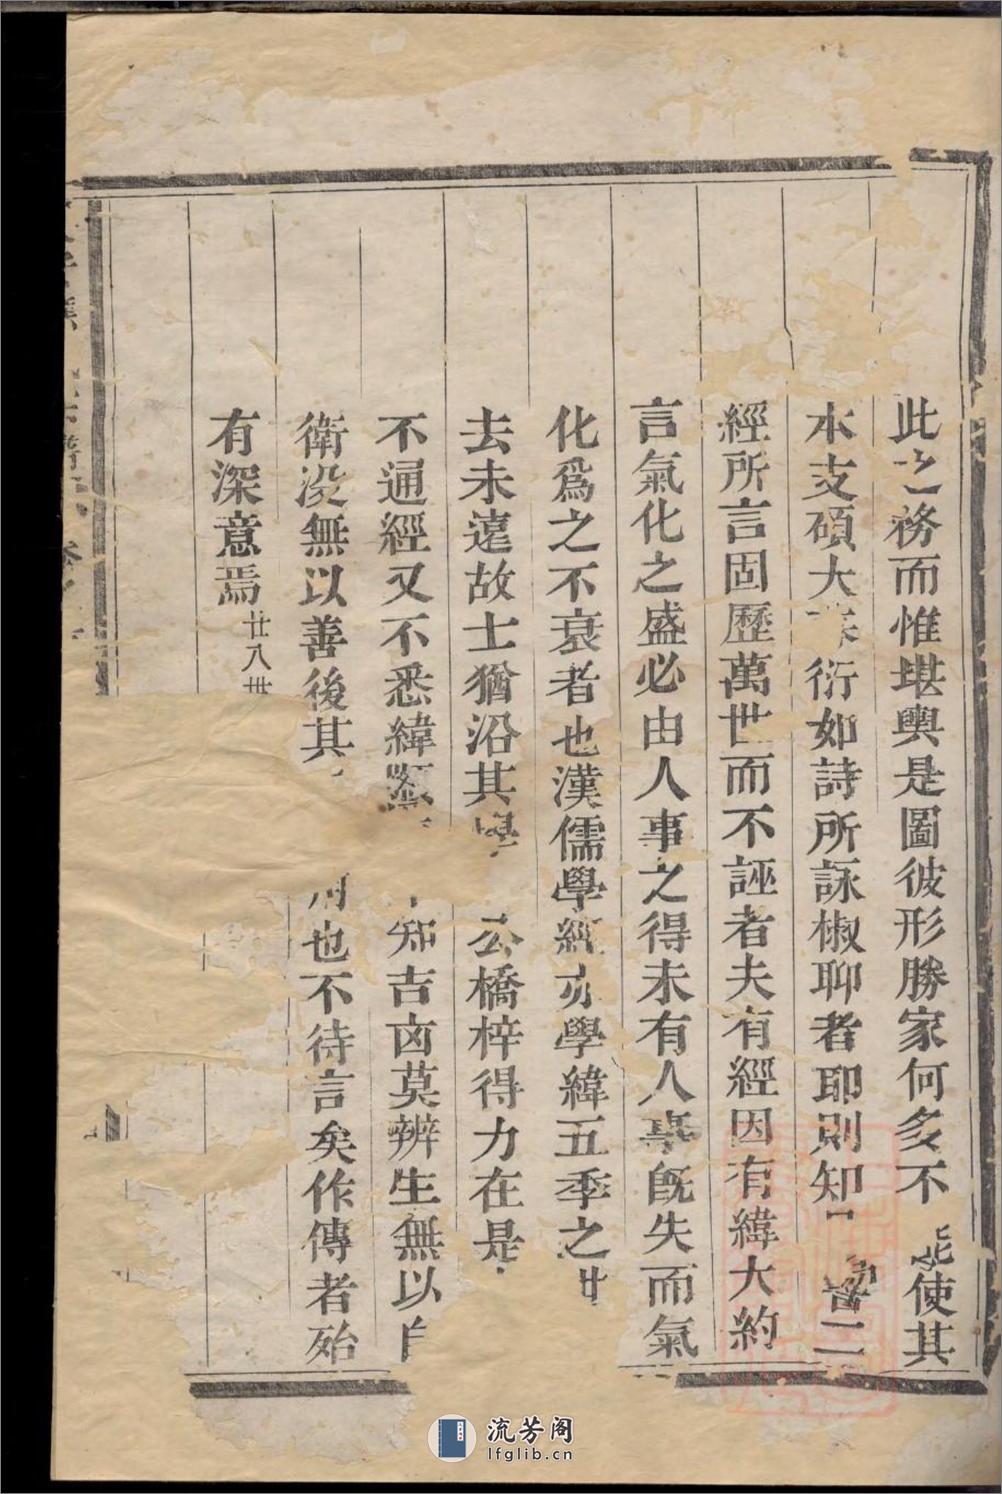 此之務而惟堪輿是圖彼形勝家何多不能使其
本支碩大衍如詩所詠椒聊者耶則知二
經所言固歷萬世而不誣者夫有經因有緯大約
言氣化之盛必由人事之得未有人事既失而氣
化爲之不衰者也漢儒學經亦學緯五季之世
去未遠故士猶沿其學公橋梓得力在是
不通經又不悉緯知吉凶莫辨生無以自
衛没無以善後其也不待言矣作傳者殆
有深意焉廿八世
流芳阁
lfglib.cn